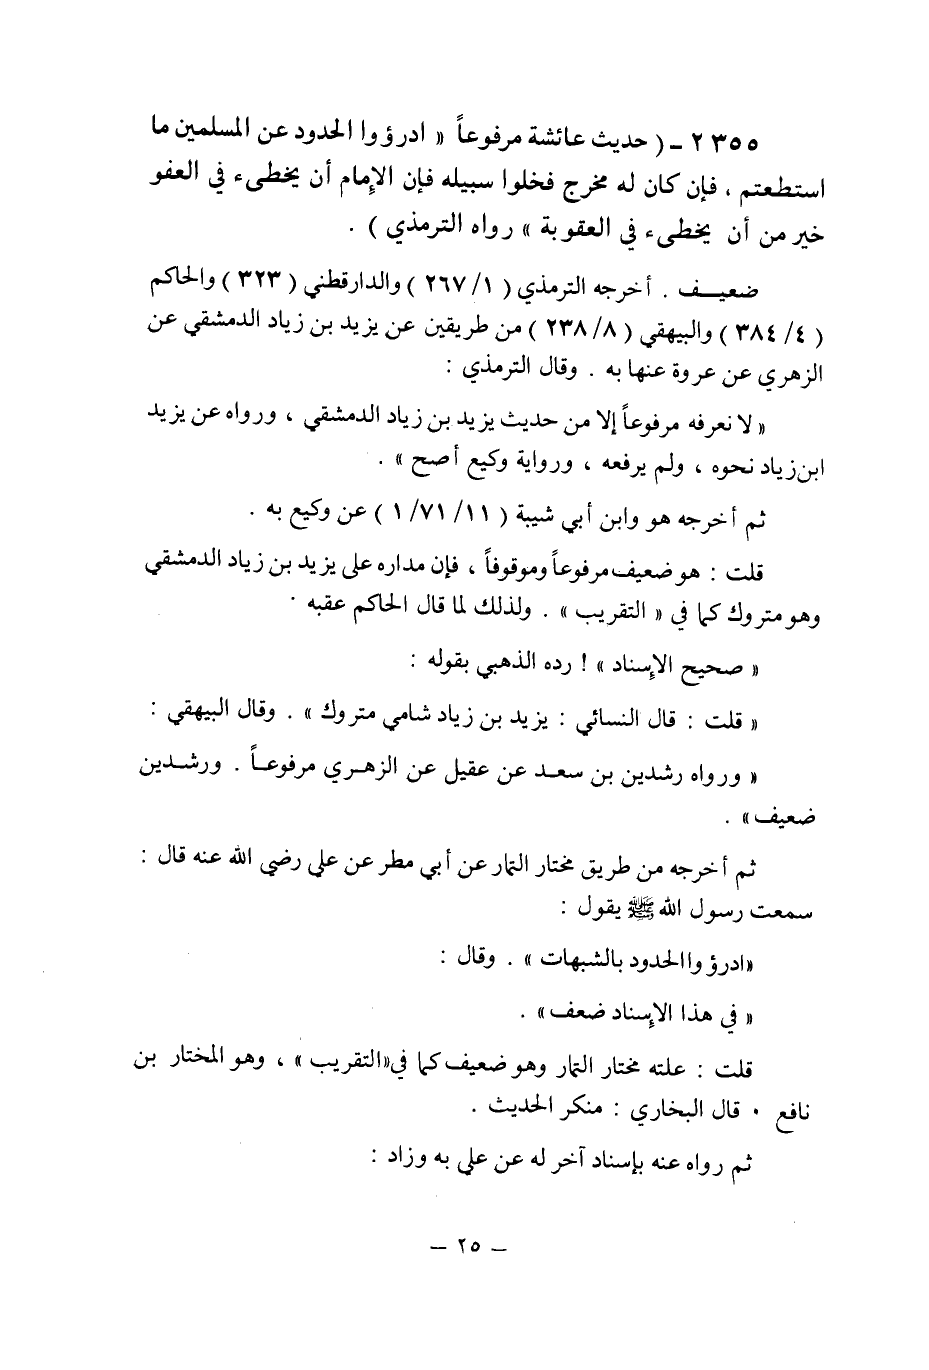 ٢٣٥٥ - ( حديث عائشة مرفوعاً « ادرؤوا الحدود عن المسلمين ما
استطعتم ، فإن كان له مخرج فخلوا سبيله فإن الإمام أن يخطىء في العفو
خير من أن يخطىء في العقوبة » رواه الترمذي ) .
ضعيــف . أخرجه الترمذي ( ١/ ٢٦٧ ) والدارقطني ( ٣٢٣ ) والحاكم
( ٤/ ٣٨٤ ) والبيهقي ( ٨/ ٢٣٨ ) من طريقين عن يزيد بن زياد الدمشقي عن
الزهري عن عروة عنها به . وقال الترمذي :
« لا نعرفه مرفوعاً إلا من حديث يزيد بن زياد الدمشقي ، ورواه عن يزيد
ابن زياد نحوه ، ولم يرفعه ، ورواية وكيع أصح » .
ثم أخرجه هو وابن أبي شيبة ( ١١/ ٧١/ ١ ) عن وكيع به .
قلت : هو ضعيف مرفوعاً وموقوفاً ، فإن مداره على يزيد بن زياد الدمشقي
وهو متروك كما في « التقريب » . ولذلك لما قال الحاكم عقبه .
« صحيح الإسناد » ! رده الذهبي بقوله :
« قلت : قال النسائي : يزيد بن زياد شامي متروك » . وقال البيهقي :
« ورواه رشدين بن سعـد عن عقيل عن الزهـري مرفوعـاً . ورشـدين
ضعيف » .
ثم أخرجه من طريق مختار التمار عن أبي مطر عن علي رضي الله عنه قال :
سمعت رسول الله ﷺ يقول :
« ادرؤوا الحدود بالشبهات » . وقال :
« في هذا الإسناد ضعف » .
قلت : علته مختار التمار وهو ضعيف كما في « التقريب » ، وهو المختار بن
نافع . قال البخاري : منكر الحديث .
ثم رواه عنه بإسناد آخر له عن علي به وزاد :
– ٢٥ –